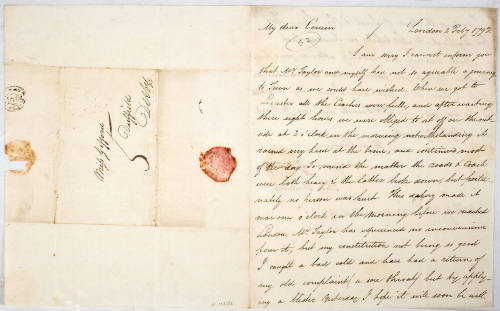 My dear Cousin
London 2 Feby 1792
52
I am sorry I cannot inform you
that Mr. Taylor and myself had not so agreeable a journey
to Town as we could have wished. When we got to
Leicester all the Coaches were full, and after waiting
there eight hours we were obliged to set off on the out
side at 2 o'clock in the morning notwithstanding it
rained very hard at the time, and continued most
of the day. To mend the matter the roads & Coach
were both heavy & the latter broke down, but fortu
nately no person was hurt. This delay made it
near one o'clock in the Morning before we reached
London. Mr. Taylor has experienced no inconvenience
from it, but my constitution not being so good
I caught a bad cold and have had a return of
my old complaint, a sore throat, but by apply
ing a blister Yesterday I hope it will soon be well.
Duffield
Derby
5